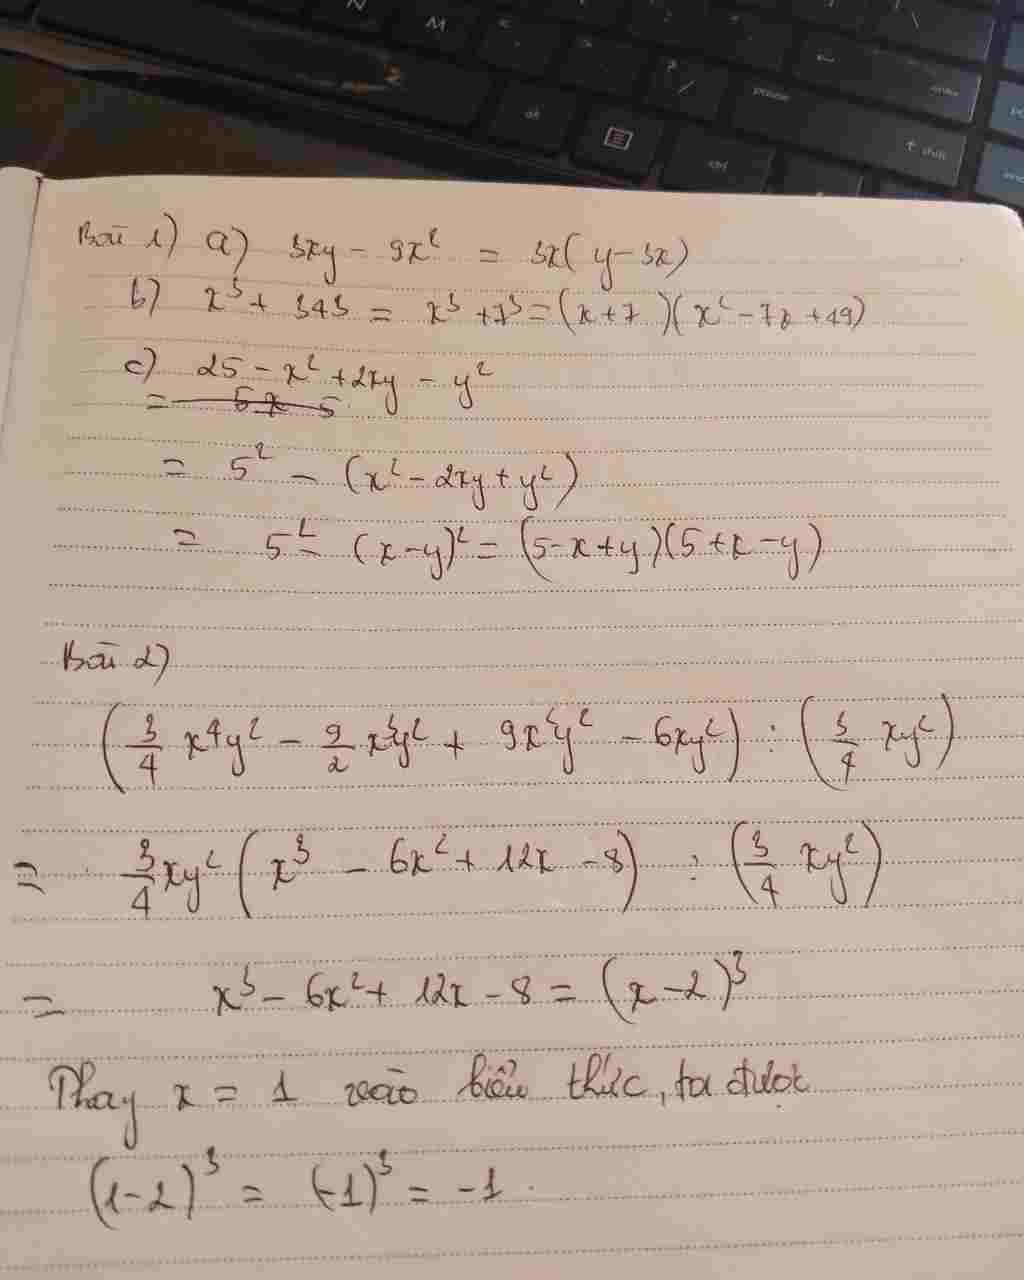 N M < > ? / alt ctrl pause enter ↑ shift
Bài 1) a) 3xy - 9x² = 3x(y-3x)
b) x³ + 343 = x³ + 7³ = (x+7)(x² - 7x + 49)
c) 25 - x² + 2xy - y²
= 5² - (x² - 2xy + y²)
= 5² - (x-y)² = (5-x+y)(5+x-y)
Bài 2)
(3/4 x⁴y² - 9/2 x³y² + 9x²y² - 6xy²) : (3/4 xy²)
= 3/4 xy² (x³ - 6x² + 12x - 8) : (3/4 xy²)
= x³ - 6x² + 12x - 8 = (x-2)³
Thay x = 1 vào biểu thức, ta được
(1-2)³ = (-1)³ = -1.